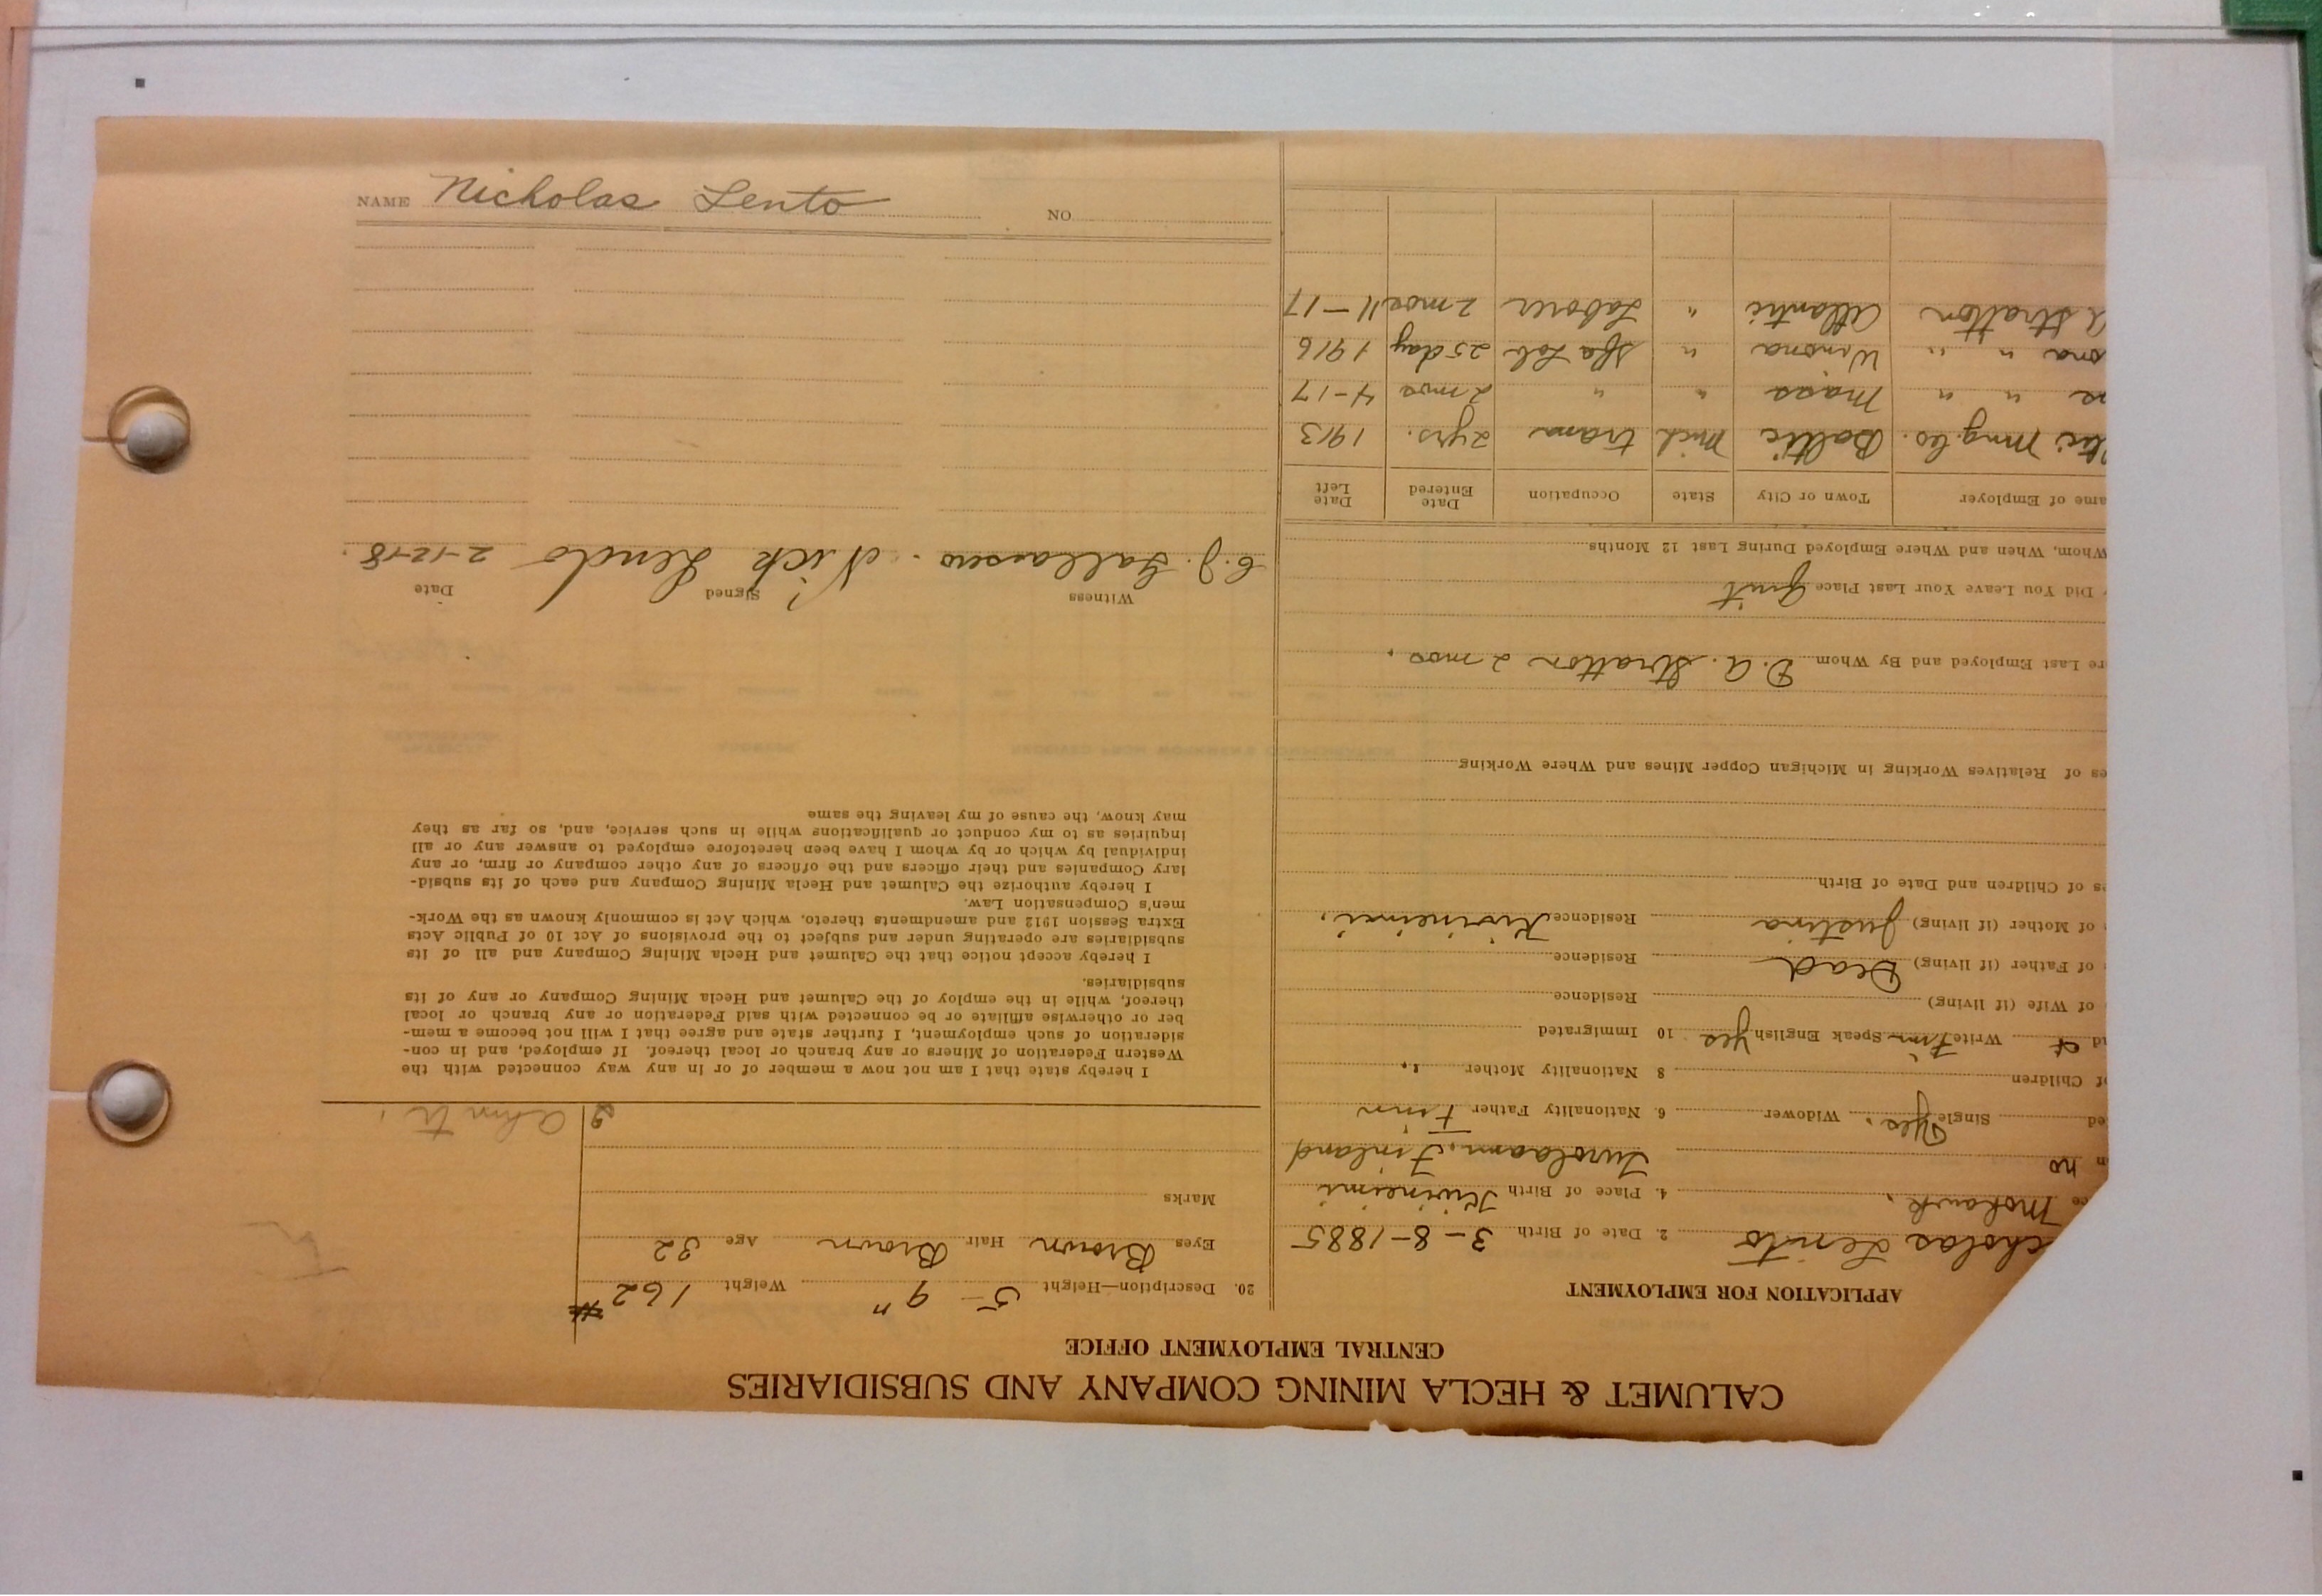 CALUMET & HECLA MINING COMPANY AND SUBSIDIARIES
CENTRAL EMPLOYMENT OFFICE
APPLICATION FOR EMPLOYMENT
cholas Lento 2. Date of Birth 3-8-1885
ce Mohawk. 4. Place of Birth Kiviniemi
n no Finland
ed Single Yes. Widower 6. Nationality Father Finn
of Children 8 Nationality Mother "
nd Write Finn Speak English Yes 10 Immigrated
of Wife (if living) Residence
of Father (if living) Dead Residence
of Mother (if living) Justina Residence Kiviniemi.
es of Children and Date of Birth
es of Relatives Working in Michigan Copper Mines and Where Working
re Last Employed and By Whom D. A. Stratton 2 mos.
Did You Leave Your Last Place Quit
Whom, When and Where Employed During Last 12 Months
ame of Employer Town or City State Occupation Date Entered Date Left
ltic Mng. Co. Baltic Mich tram 2 yrs. 1913
" " Mass " " 2 mos 4-17
ona " " Winona " Sfa Lab 25 day 1916
A Stratton Atlantic " Laborer 2 mos 11-17
20. Description—Height 5-9" Weight 162 #
Eyes Brown Hair Brown Age 32
Marks
I hereby state that I am not now a member of or in any way connected with the
Western Federation of Miners or any branch or local thereof. If employed, and in con-
sideration of such employment, I further state and agree that I will not become a mem-
ber or otherwise affiliate or be connected with said Federation or any branch or local
thereof, while in the employ of the Calumet and Hecla Mining Company or any of its
subsidiaries.
I hereby accept notice that the Calumet and Hecla Mining Company and all of its
subsidiaries are operating under and subject to the provisions of Act 10 of Public Acts
Extra Session 1912 and amendments thereto, which Act is commonly known as the Work-
men's Compensation Law.
I hereby authorize the Calumet and Hecla Mining Company and each of its subsid-
iary Companies and their officers and the officers of any other company or firm, or any
individual by which or by whom I have been heretofore employed to answer any or all
inquiries as to my conduct or qualifications while in such service, and, so far as they
may know, the cause of my leaving the same
Witness Signed Date
Nick Lendo 2-12-18.
NAME Nicholas Lento NO.